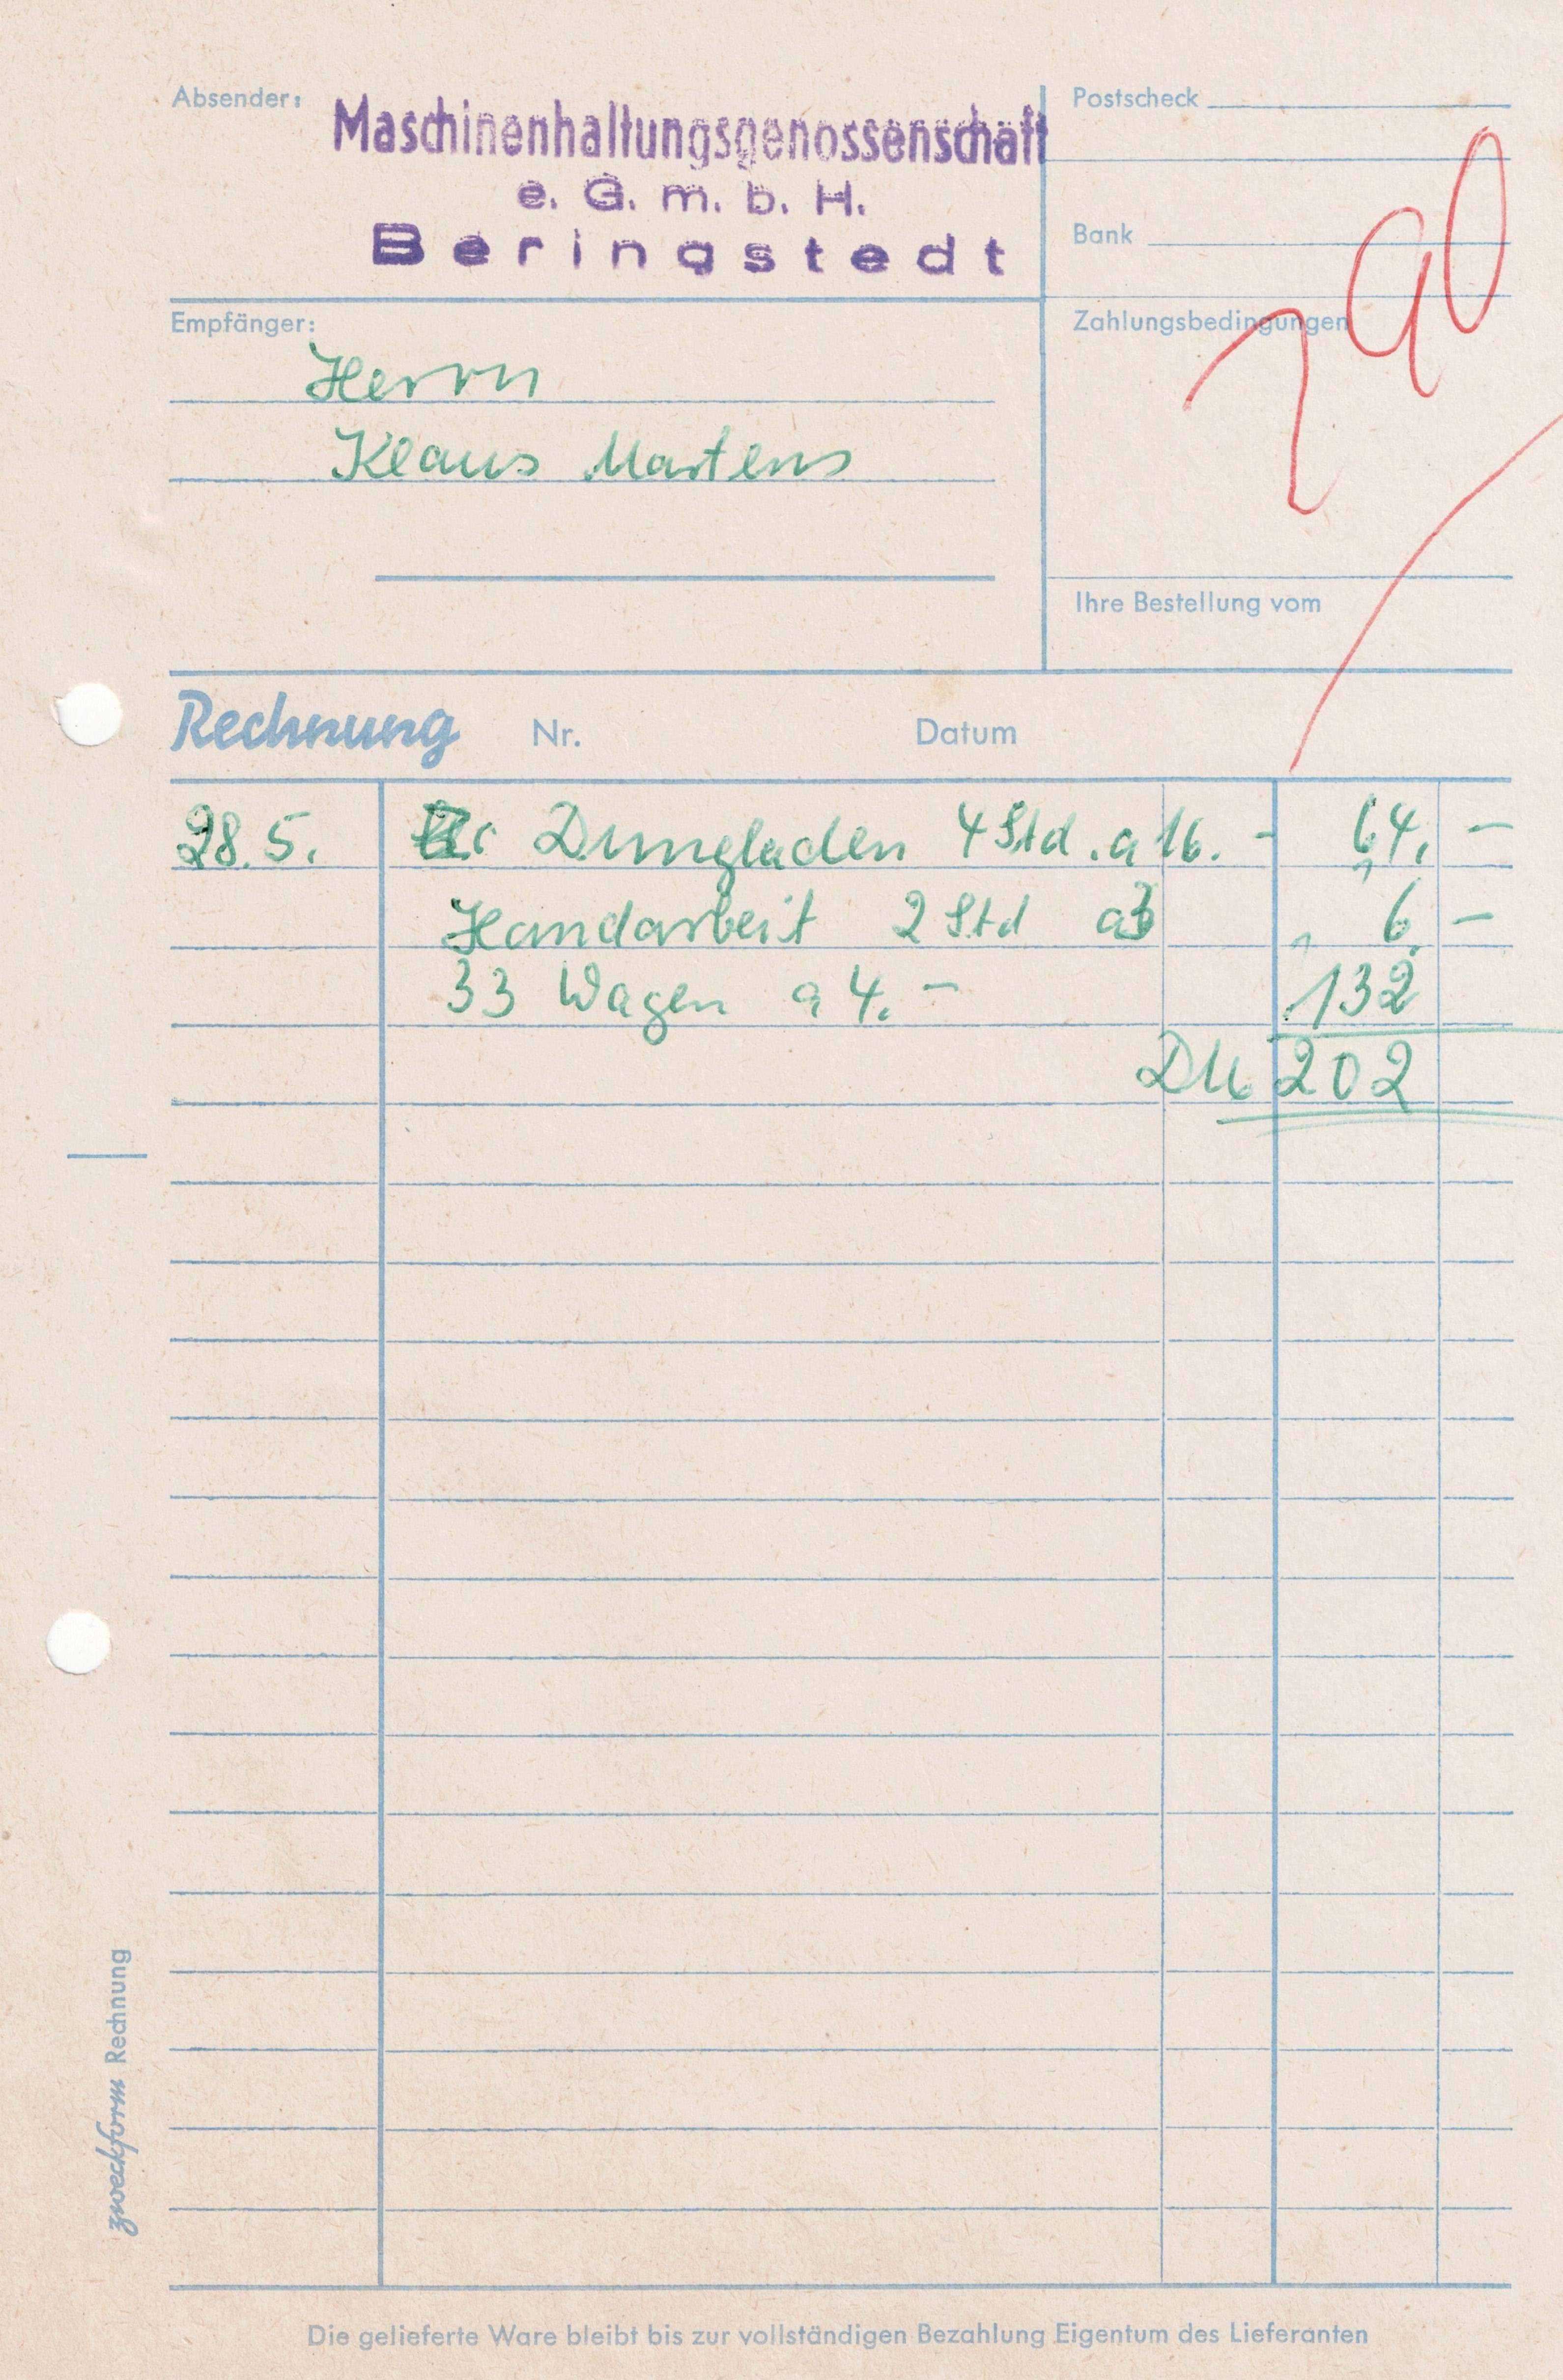 Absender:
Maschinenhaltungsgenossenschaft
e. G. m. b. H.
Beringstedt
Postscheck
Bank
Zahlungsbedingungen
Empfänger:
Herrn
Klaus Martens
Ihre Bestellung vom
Rechnung Nr. Datum
28.5. Dungladen 4 Std. a 16. - 64. -
Handarbeit 2 Std a 3 6. -
33 Wagen a 4. - 132
DM 202
zweckform Rechnung
Die gelieferte Ware bleibt bis zur vollständigen Bezahlung Eigentum des Lieferanten